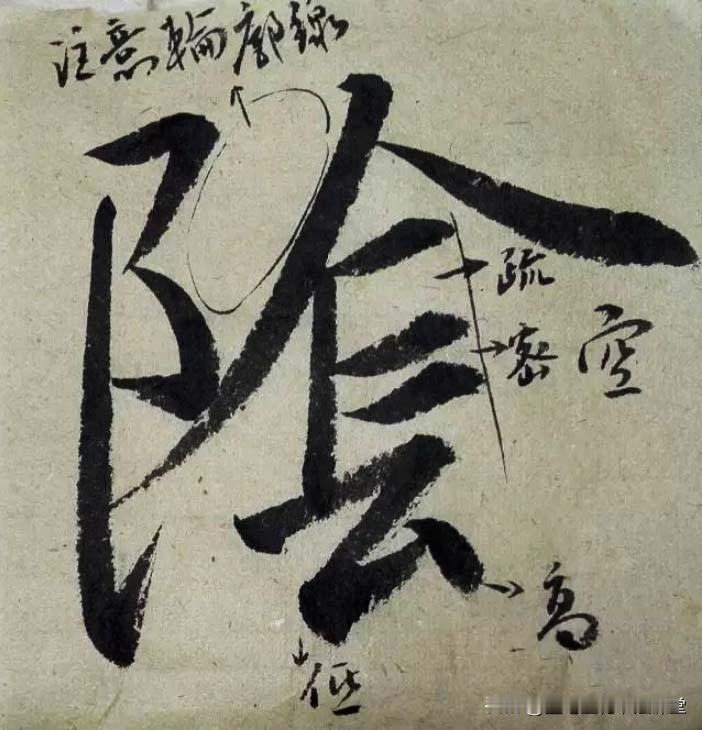 注意輪廓線
陰
疏
密
空
高
低